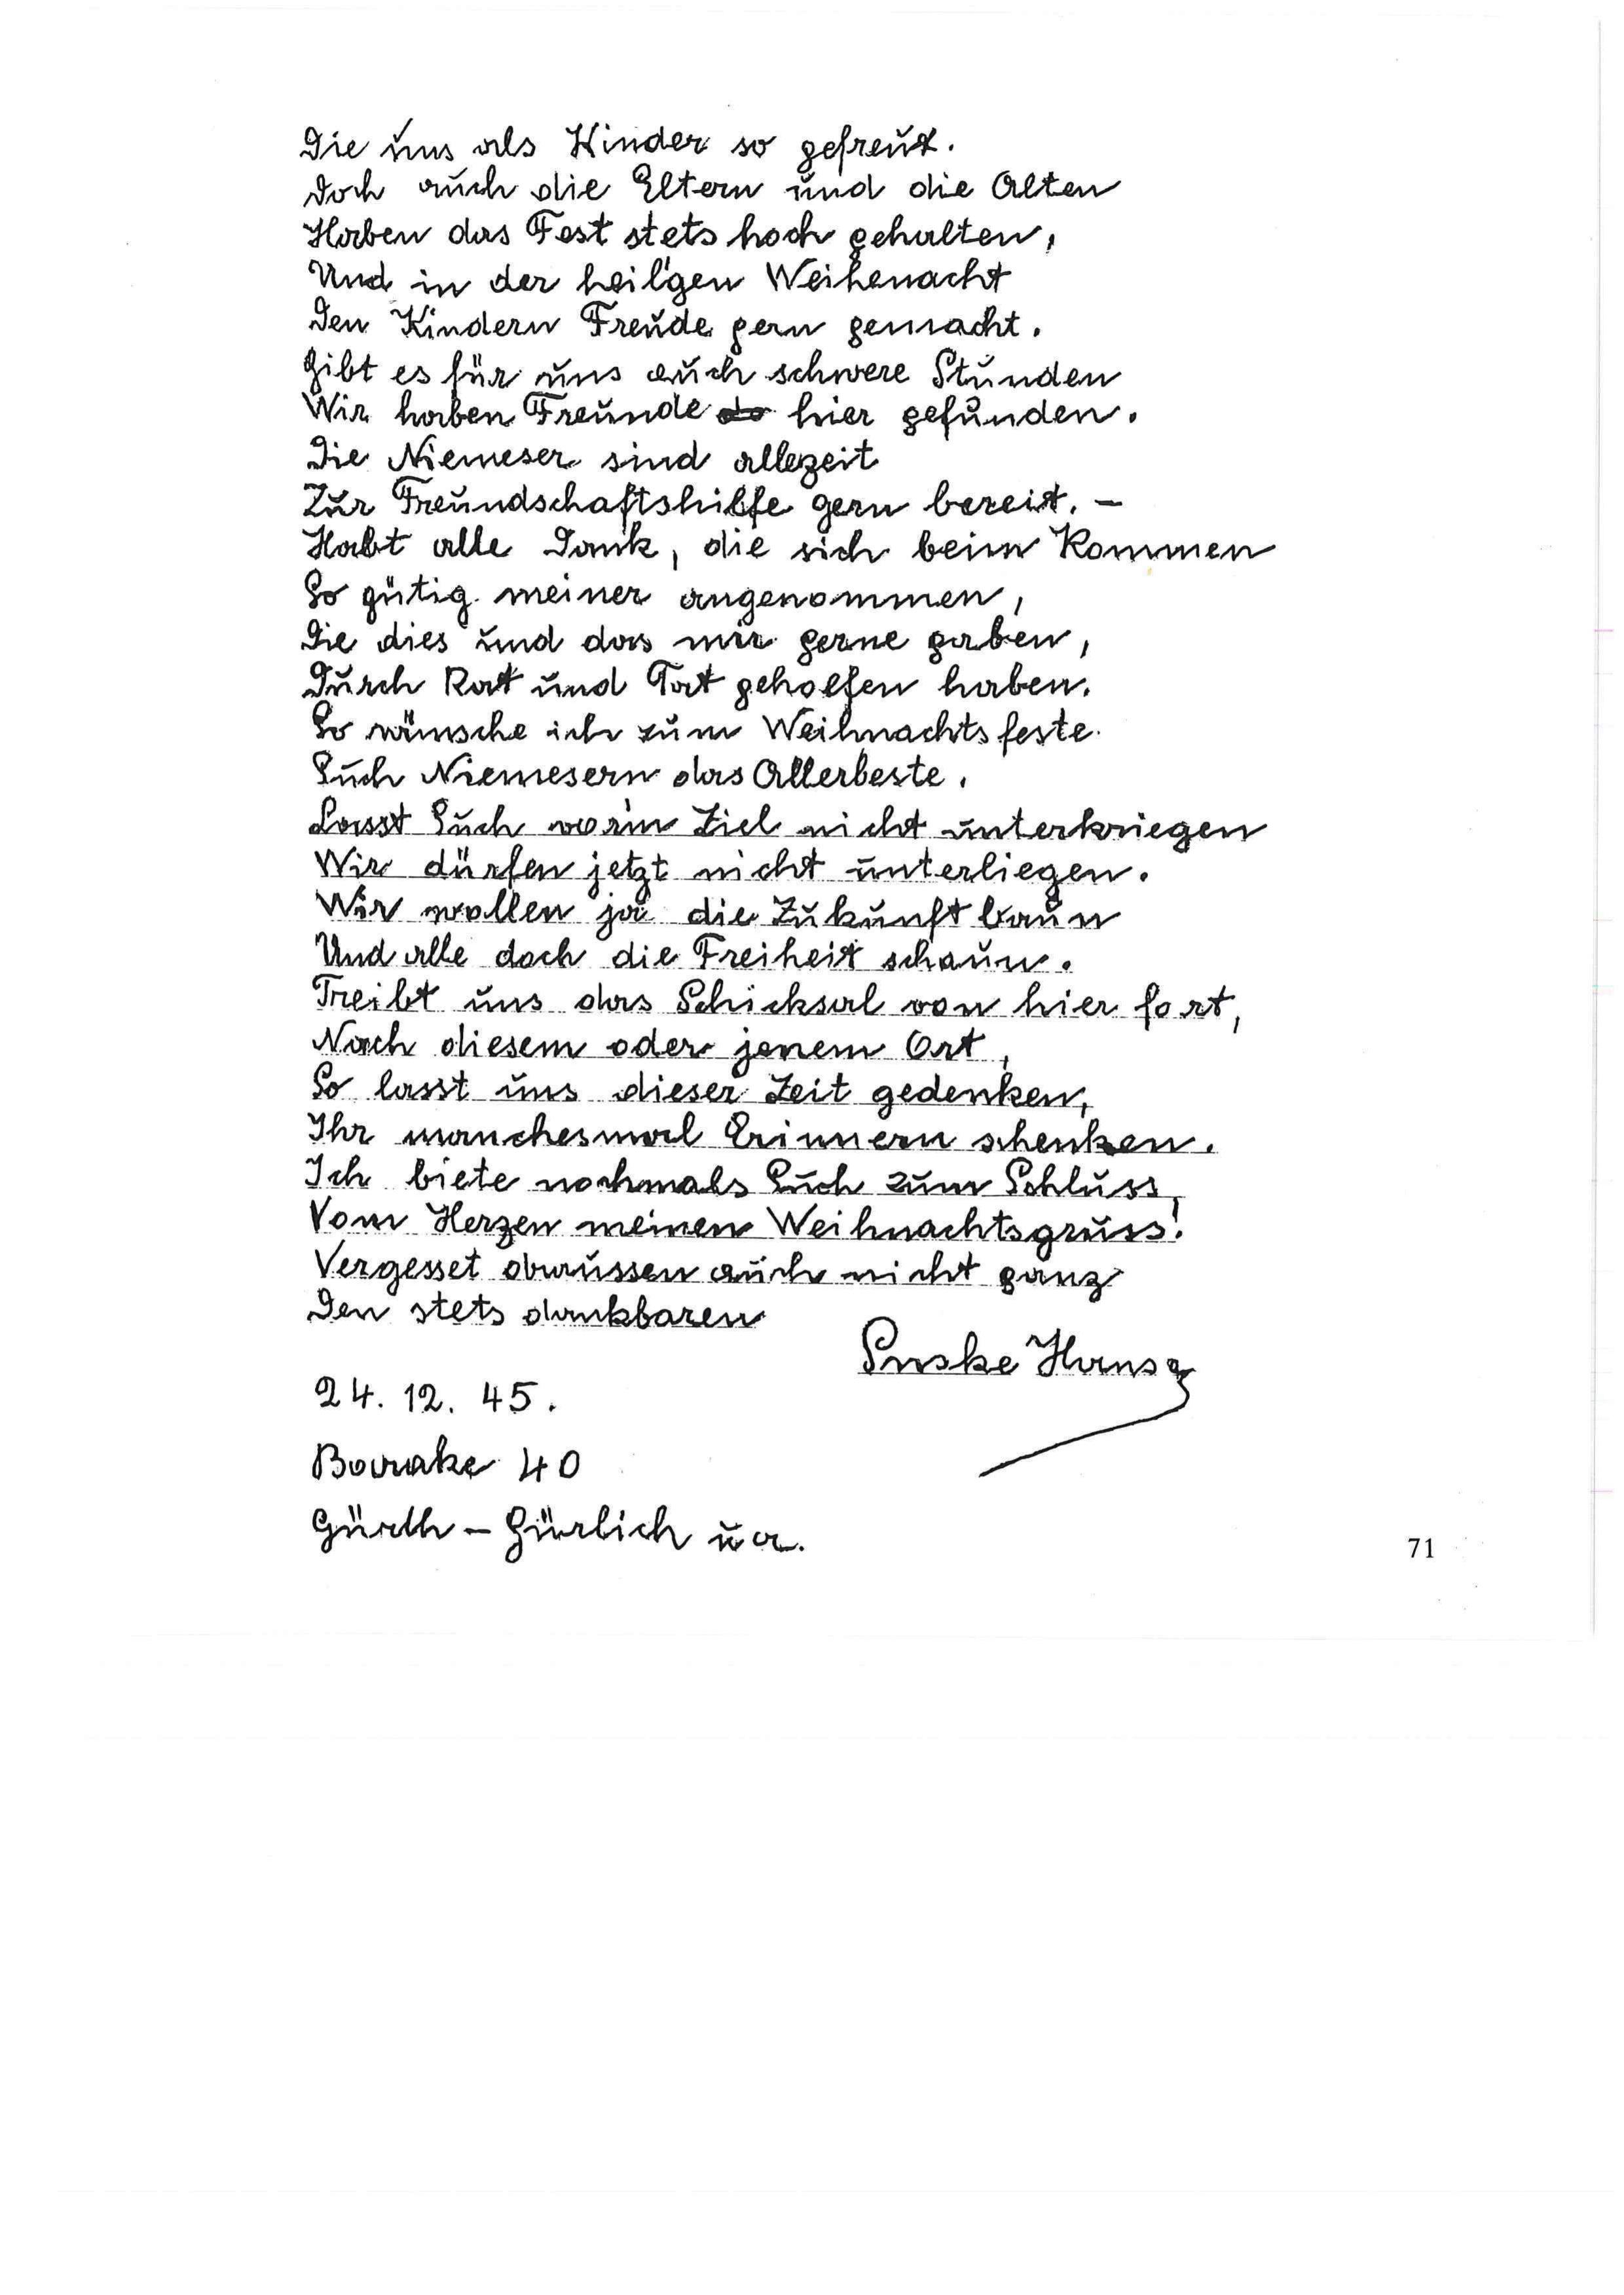 Die uns als Kinder so gefreut.
Doch auch die Eltern und die Alten
Haben das Fest stets hoch gehalten,
Und in der heil'gen Weihenacht
Den Kindern Freude gern gemacht.
Gibt es für uns auch schwere Stunden
Wir haben Freunde hier gefunden.
Die Niemeser sind allezeit
Zur Freundschaftshilfe gern bereit. –
Habt alle Dank, die sich beim Kommen
So gütig meiner angenommen,
Die dies und das mir gerne gaben,
Durch Rat und Tat geholfen haben.
So wünsche ich zum Weihnachtsfeste
Euch Niemesern das Allerbeste.
Lasst Euch vor'm Ziel nicht unterkriegen
Wir dürfen jetzt nicht unterliegen.
Wir wollen ja die Zukunft baun
Und alle doch die Freiheit schaun.
Treibt uns das Schicksal von hier fort,
Nach diesem oder jenem Ort,
So lasst uns dieser Zeit gedenken,
Ihr manchesmal Erinnern schenken.
Ich biete nochmals Euch zum Schluss,
Vom Herzen meinen Weihnachtsgruss!
Vergesset draussen auch nicht ganz
Den stets dankbaren
Hans
24. 12. 45.
Barake 40
Gürth – Gürlich u a.
71